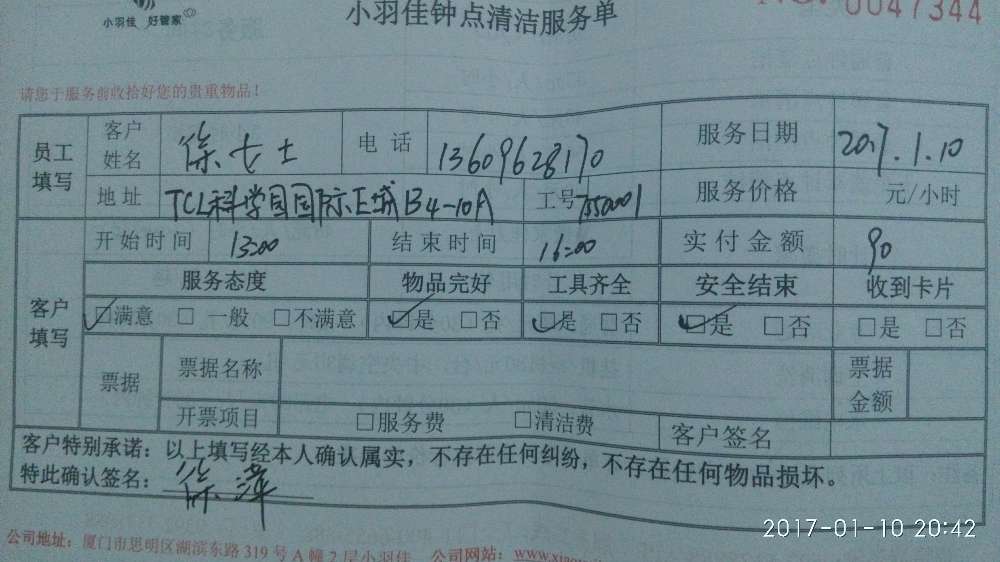 小羽佳 好管家
小羽佳钟点清洁服务单
0047344
请您于服务前收拾好您的贵重物品!
员工填写 客户姓名 徐女士 电话 13609628170 服务日期 2017.1.10
地址 TCL科学园国际E城B4-10A 工号 服务价格 元/小时
客户填写 开始时间 13:00 结束时间 16:00 实付金额 90
服务态度 物品完好 工具齐全 安全结束 收到卡片
☑满意 □一般 □不满意 ☑是 □否 ☑是 □否 ☑是 □否 □是 □否
票据 票据名称 票据金额
开票项目 □服务费 □清洁费 客户签名
客户特别承诺：以上填写经本人确认属实，不存在任何纠纷，不存在任何物品损坏。
特此确认签名：徐
公司地址：厦门市思明区湖滨东路319号A幢2层小羽佳 公司网站：www.xiao
2017-01-10 20:42